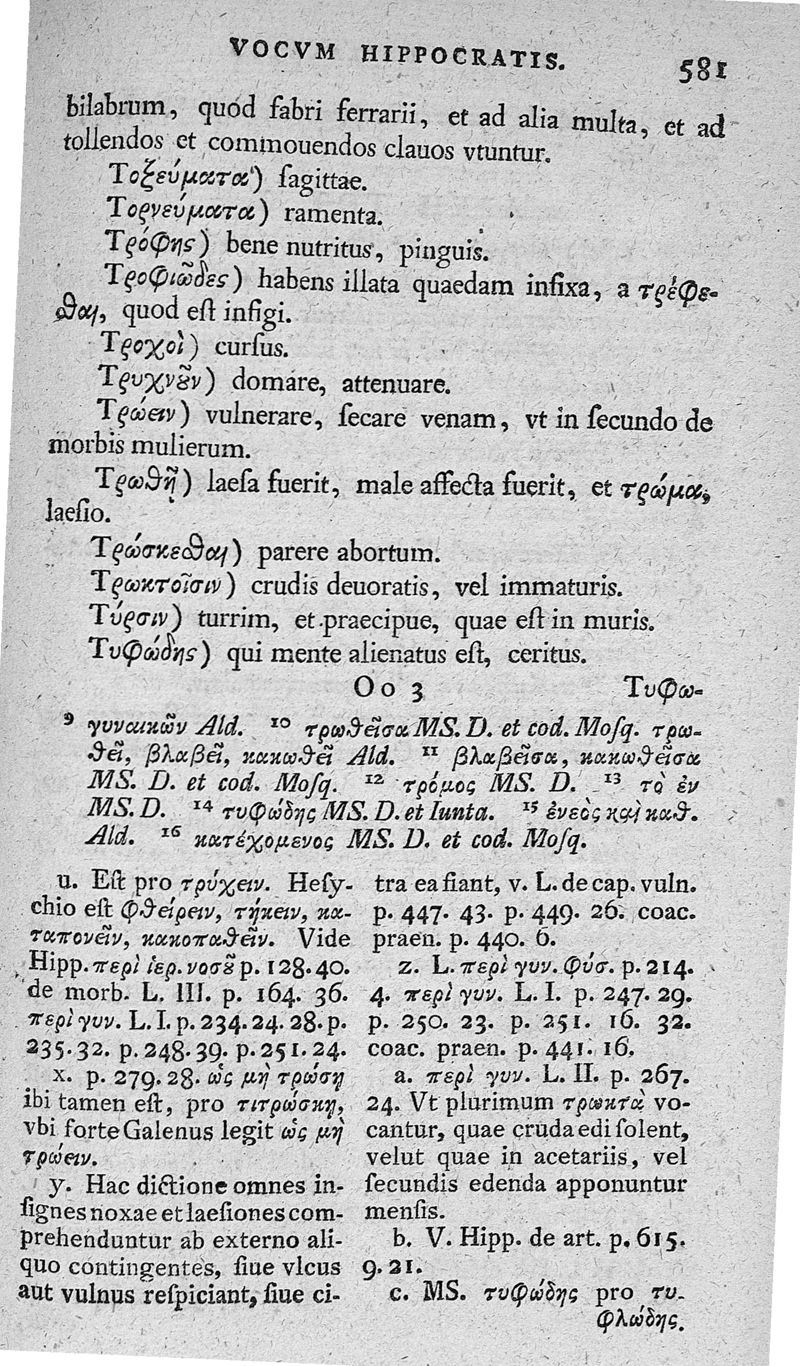 VOCVM HIPPOCRATIS.
581
bilabrum, quod fabri ferrarii, et ad alia multa, et ad
tollendos et commouendos clauos vtuntur.
Τοξεύματα) ſagittae.
Τορνεύματα) ramenta.
Τρόφης) bene nutritus, pinguis.
Τροφιῶδες) habens illata quaedam infixa, a τρέφε-
ϑαι, quod eſt infigi.
Τροχοὶ) curſus.
Τρυχνοῦν) domare, attenuare.
Τρώειν) vulnerare, ſecare venam, vt in ſecundo de
morbis mulierum.
Τρωϑῇ) laeſa fuerit, male affecta fuerit, et τρώμα,
laeſio.
Τρώσκεσϑαι) parere abortum.
Τρωκτοῖσιν) crudis deuoratis, vel immaturis.
Τύρσιν) turrim, et praecipue, quae eſt in muris.
Τυφώδης) qui mente alienatus eſt, ceritus.
Oo 3
Τυφω-
9 γυναικῶν Ald. 10 τρωϑεῖσα MS. D. et cod. Moſq. τρω-
ϑεῖ, βλαβεῖ, κακωϑεῖ Ald. 11 βλαβεῖσα, κακωϑεῖσα
MS. D. et cod. Moſq. 12 τρόμος MS. D. 13 τὸ ἐν
MS. D. 14 τυφώδης MS. D. et Iunta. 15 ἐνεὸς καὶ καϑ.
Ald. 16 κατέχομενος MS. D. et cod. Moſq.
u. Eſt pro τρύχειν. Heſy-
chio eſt φϑείρειν, τήκειν, κα-
ταπονεῖν, κακοπαϑεῖν. Vide
Hipp. περὶ ἱερ. νοσοῦ p. 128. 40.
de morb. L. III. p. 164. 36.
περὶ γυν. L. I. p. 234. 24. 28. p.
235. 32. p. 248. 39. p. 251. 24.
x. p. 279. 28. ὡς μὴ τρώσῃ
ibi tamen eſt, pro τιτρώσκῃ,
vbi forte Galenus legit ὡς μὴ
τρώειν.
y. Hac dictione omnes in-
ſignes noxae et laeſiones com-
prehenduntur ab externo ali-
quo contingentes, ſiue vlcus
aut vulnus reſpiciant, ſiue ci-
tra ea fiant, v. L. de cap. vuln.
p. 447. 43. p. 449. 26. coac.
praen. p. 440. 6.
z. L. περὶ γυν. φύσ. p. 214.
4. περὶ γυν. L. I. p. 247. 29.
p. 250. 23. p. 251. 16. 32.
coac. praen. p. 441. 16.
a. περὶ γυν. L. II. p. 267.
24. Vt plurimum τρωκτὰ vo-
cantur, quae cruda edi ſolent,
velut quae in acetariis, vel
ſecundis edenda apponuntur
menſis.
b. V. Hipp. de art. p. 615.
9. 21.
c. MS. τυφώδης pro τυ-
φλώδης.